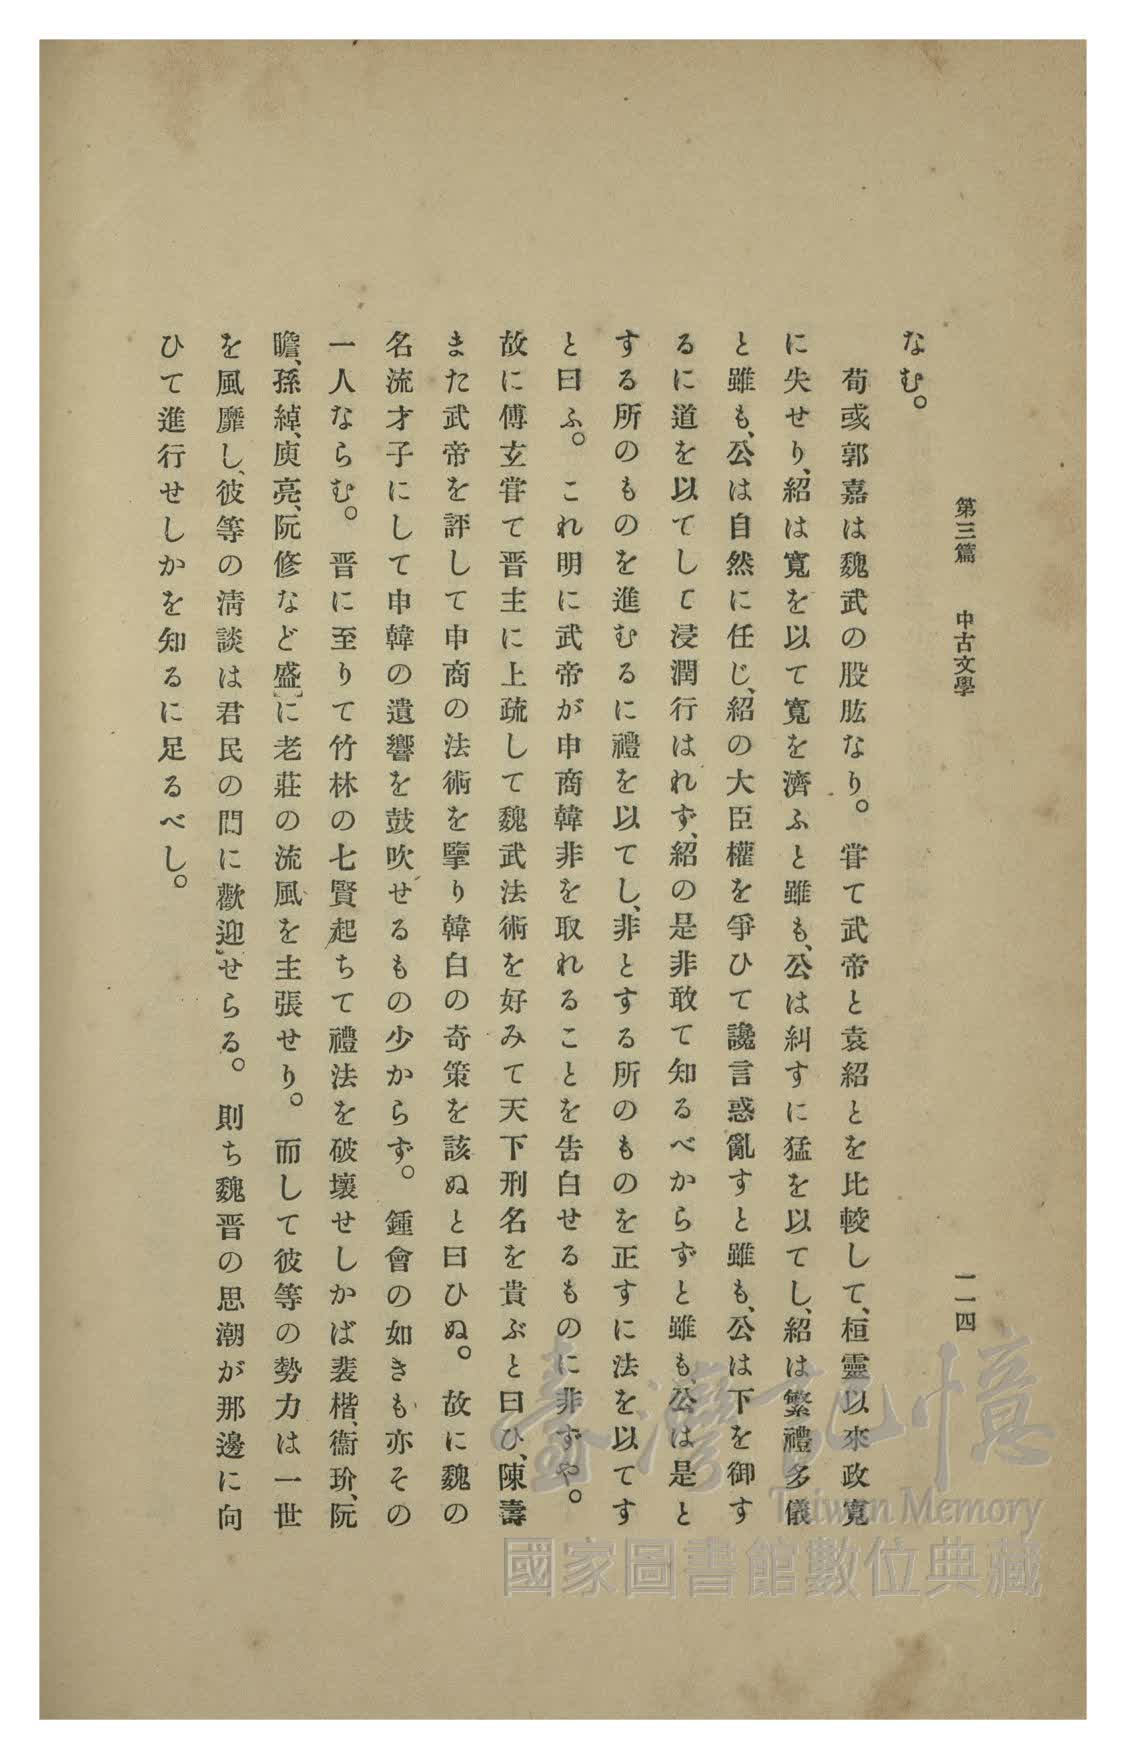 第三篇　中古文學　一一四
なむ。
荀彧郭嘉は魏武の股肱なり。嘗て武帝と袁紹とを比較して、桓靈以來政寬
に失せり、紹は寬を以て寬を濟ふと雖も、公は糾すに猛を以てし、紹は繁禮多儀
と雖も、公は自然に任じ、紹の大臣權を爭ひて讒言惑亂すと雖も、公は下を御す
るに道を以てして浸潤行はれず、紹の是非敢て知るべからずと雖も、公は是と
する所のものを進むるに禮を以てし、非とする所のものを正すに法を以てす
と曰ふ。これ明に武帝が申商韓非を取れることを告白せるものに非ずや。
故に傅玄嘗て晋主に上疏して魏武法術を好みて天下刑名を貴ぶと曰ひ、陳壽
また武帝を評して申商の法術を擥り韓白の奇策を該ぬと曰ひぬ。故に魏の
名流才子にして申韓の遺響を鼓吹せるもの少からず。鍾會の如きも亦その
一人ならむ。晋に至りて竹林の七賢起ちて禮法を破壞せしかば裴楷、衞玠、阮
瞻、孫綽、庾亮、阮修など盛に老莊の流風を主張せり。而して彼等の勢力は一世
を風靡し、彼等の淸談は君民の間に歡迎せらる。則ち魏晋の思潮が那邊に向
ひて進行せしかを知るに足るべし。
臺灣記憶
Taiwan Memory
國家圖書館數位典藏